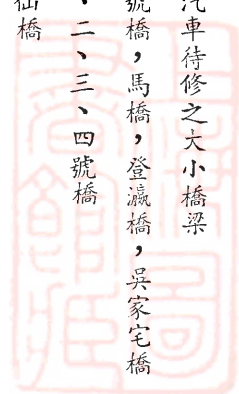 汽車待修之大小橋梁
號橋，馬橋，登瀛橋，吳家宅橋
、二、三、四號橋
仙橋